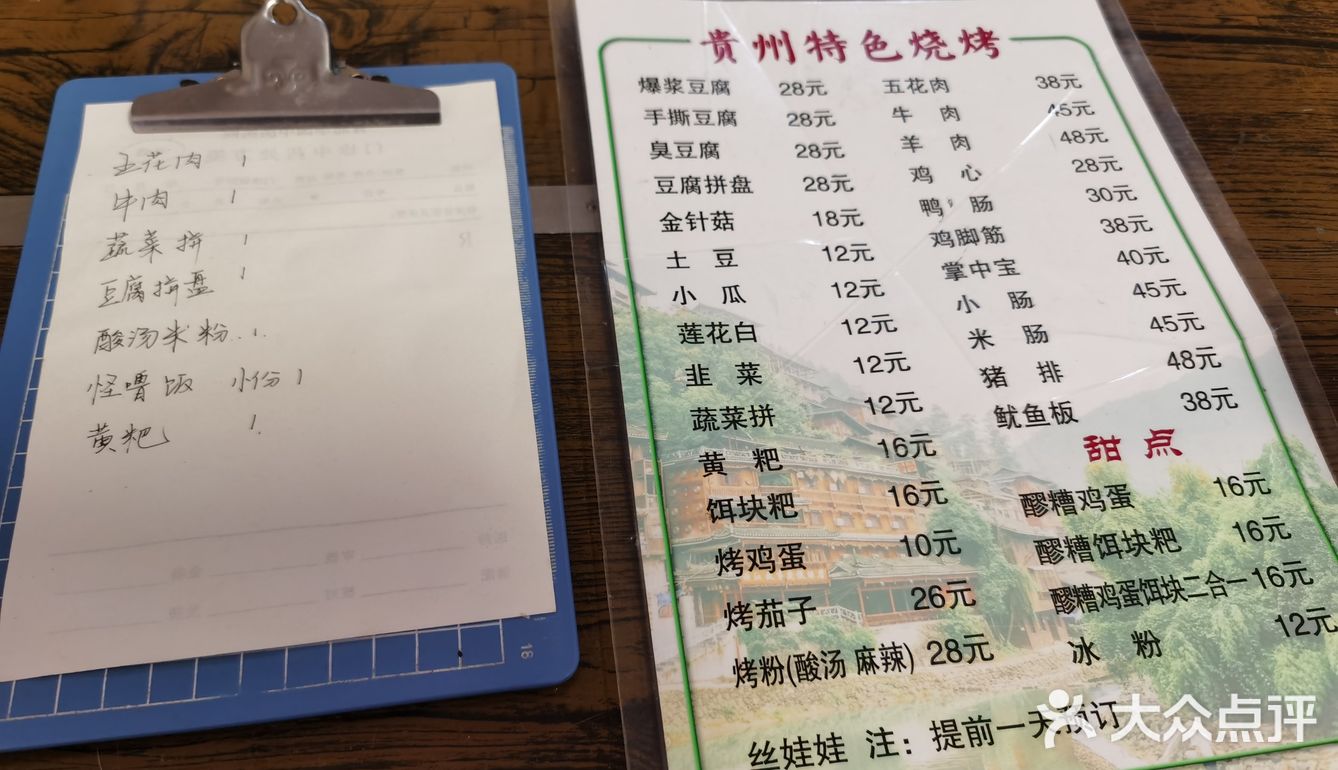 五花肉 1
牛肉 1
蔬菜拼 1
豆腐拼盘 1
酸汤米粉 1
怪噜饭 小份 1
黄粑 1
16
贵州特色烧烤
爆浆豆腐 28元
手撕豆腐 28元
臭豆腐 28元
豆腐拼盘 28元
金针菇 18元
土豆 12元
小瓜 12元
莲花白 12元
韭菜 12元
蔬菜拼 12元
黄粑 16元
饵块粑 16元
烤鸡蛋 10元
烤茄子 26元
烤粉(酸汤 麻辣) 28元
五花肉 38元
牛肉 45元
羊肉 48元
鸡心 28元
鸭肠 30元
鸡脚筋 38元
掌中宝 40元
小肠 45元
米肠 45元
猪排 48元
鱿鱼板 38元
甜点
醪糟鸡蛋 16元
醪糟饵块粑 16元
醪糟鸡蛋饵块二合一 16元
冰粉 12元
丝娃娃 注：提前一天预订
大众点评